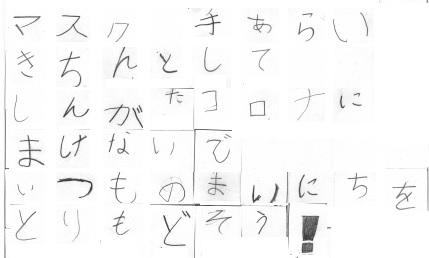 マスク 手あらい
きちんとして
しんがたコロナに
まけないで
いつものまいにちを
とりもどそう!